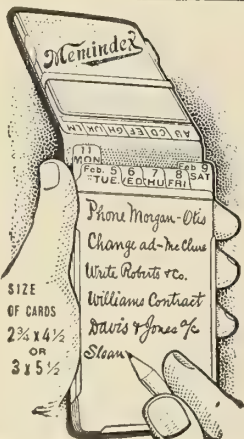 Memindex
AB CD EF GH IJK LM
11
MON
Feb. 5 6 7 8 Feb 9
TUE. WED THU FRI SAT
Phone Morgan-Otis
Change ad-McClure
Write Roberts & Co.
Williams Contract
Davis & Jones a/c
Sloan
SIZE
OF CARDS
2¾ x 4½
OR
3 x 5½